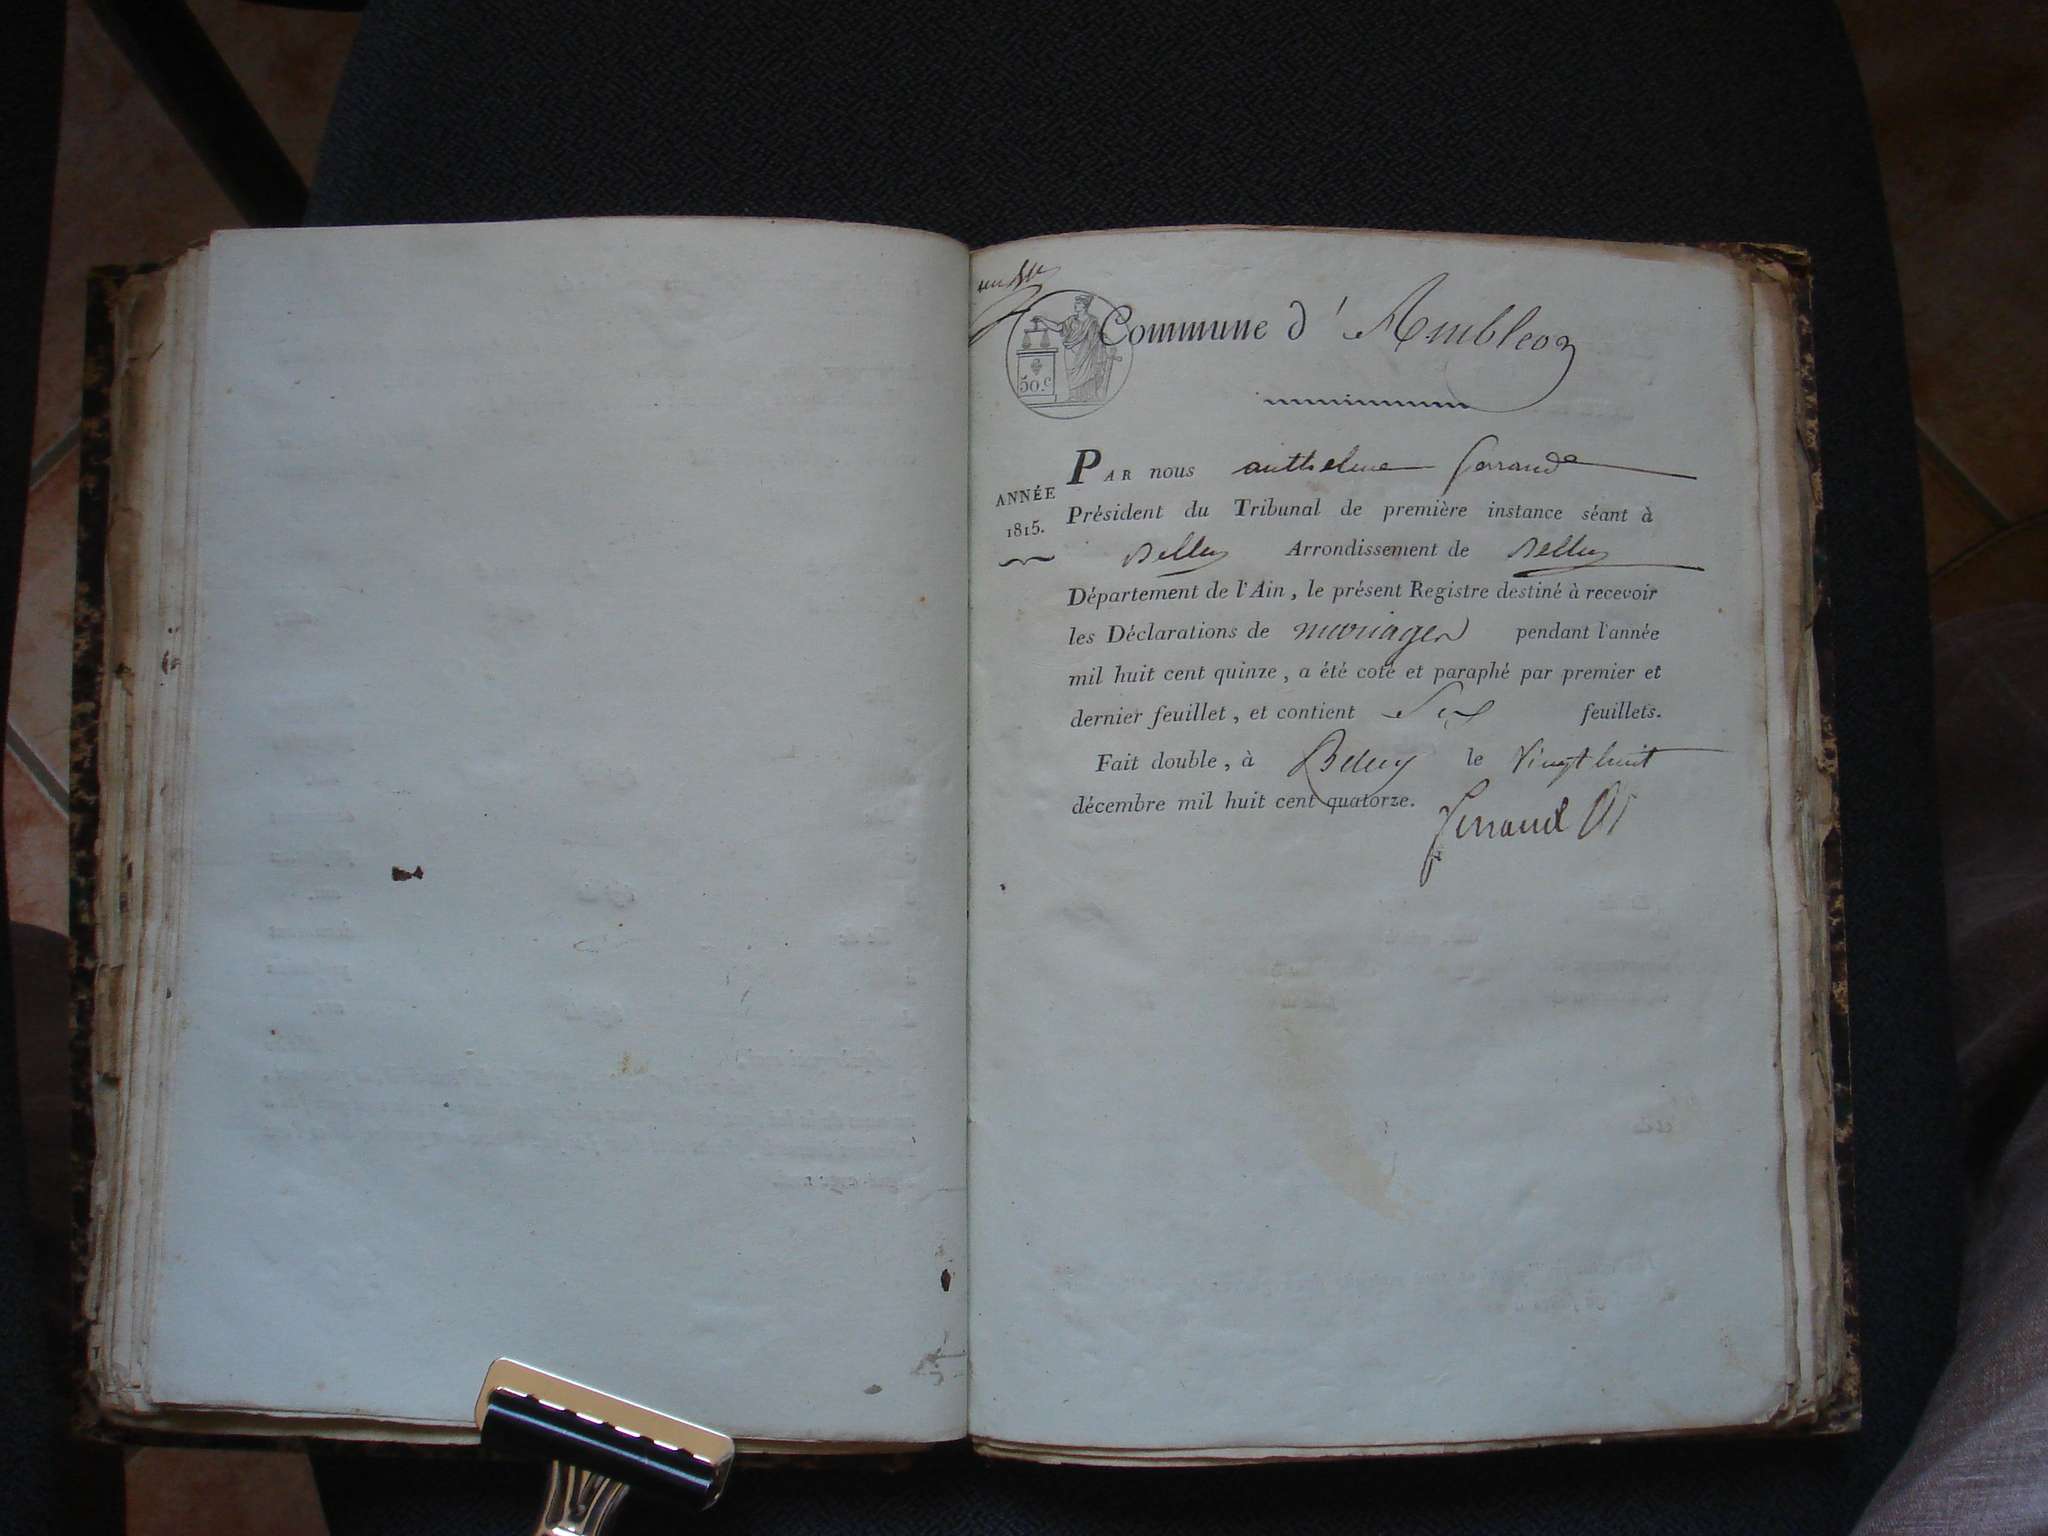 Commune d'Ambleon
50.c
PAR nous anthelme ferrand
ANNÉE
1815.
Président du Tribunal de première instance séant à
Belley Arrondissement de Belley
Département de l'Ain, le présent Registre destiné à recevoir
les Déclarations de mariages pendant l'année
mil huit cent quinze, a été coté et paraphé par premier et
dernier feuillet, et contient Six feuillets.
Fait double, à Belley le Vingt huit
décembre mil huit cent quatorze.
ferrand